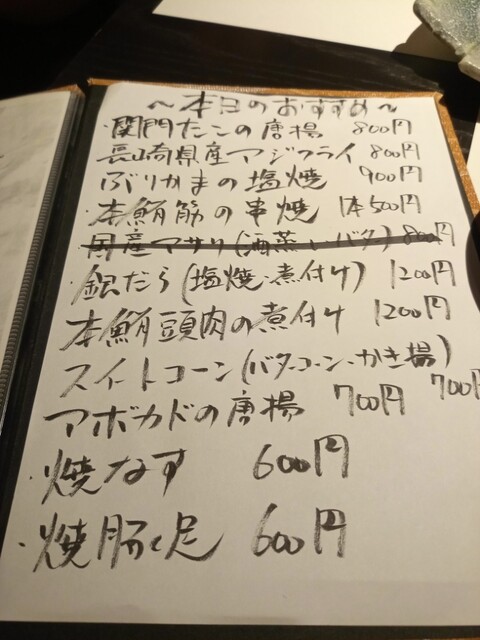 ～本日のおすすめ～
・関門たこの唐揚 800円
長崎県産アジフライ 800円
ぶりかまの塩焼 900円
・本鮪筋の串焼 1本500円
国産アサリ(酒蒸し・バタ) 800円
・銀だら(塩焼・煮付け) 1200円
本鮪頭肉の煮付け 1200円
スイートコーン(バターコーン・かき揚) 700円
アボカドの唐揚 700円
・焼なす 600円
・焼豚足 600円